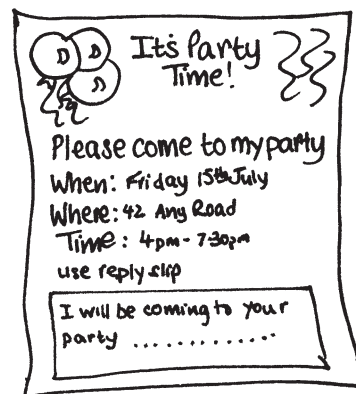 It's Party
Time!
Please come to my party
When: Friday 15th July
Where: 42 Any Road
Time: 4pm - 7:30pm
use reply slip
I will be coming to your
party .............